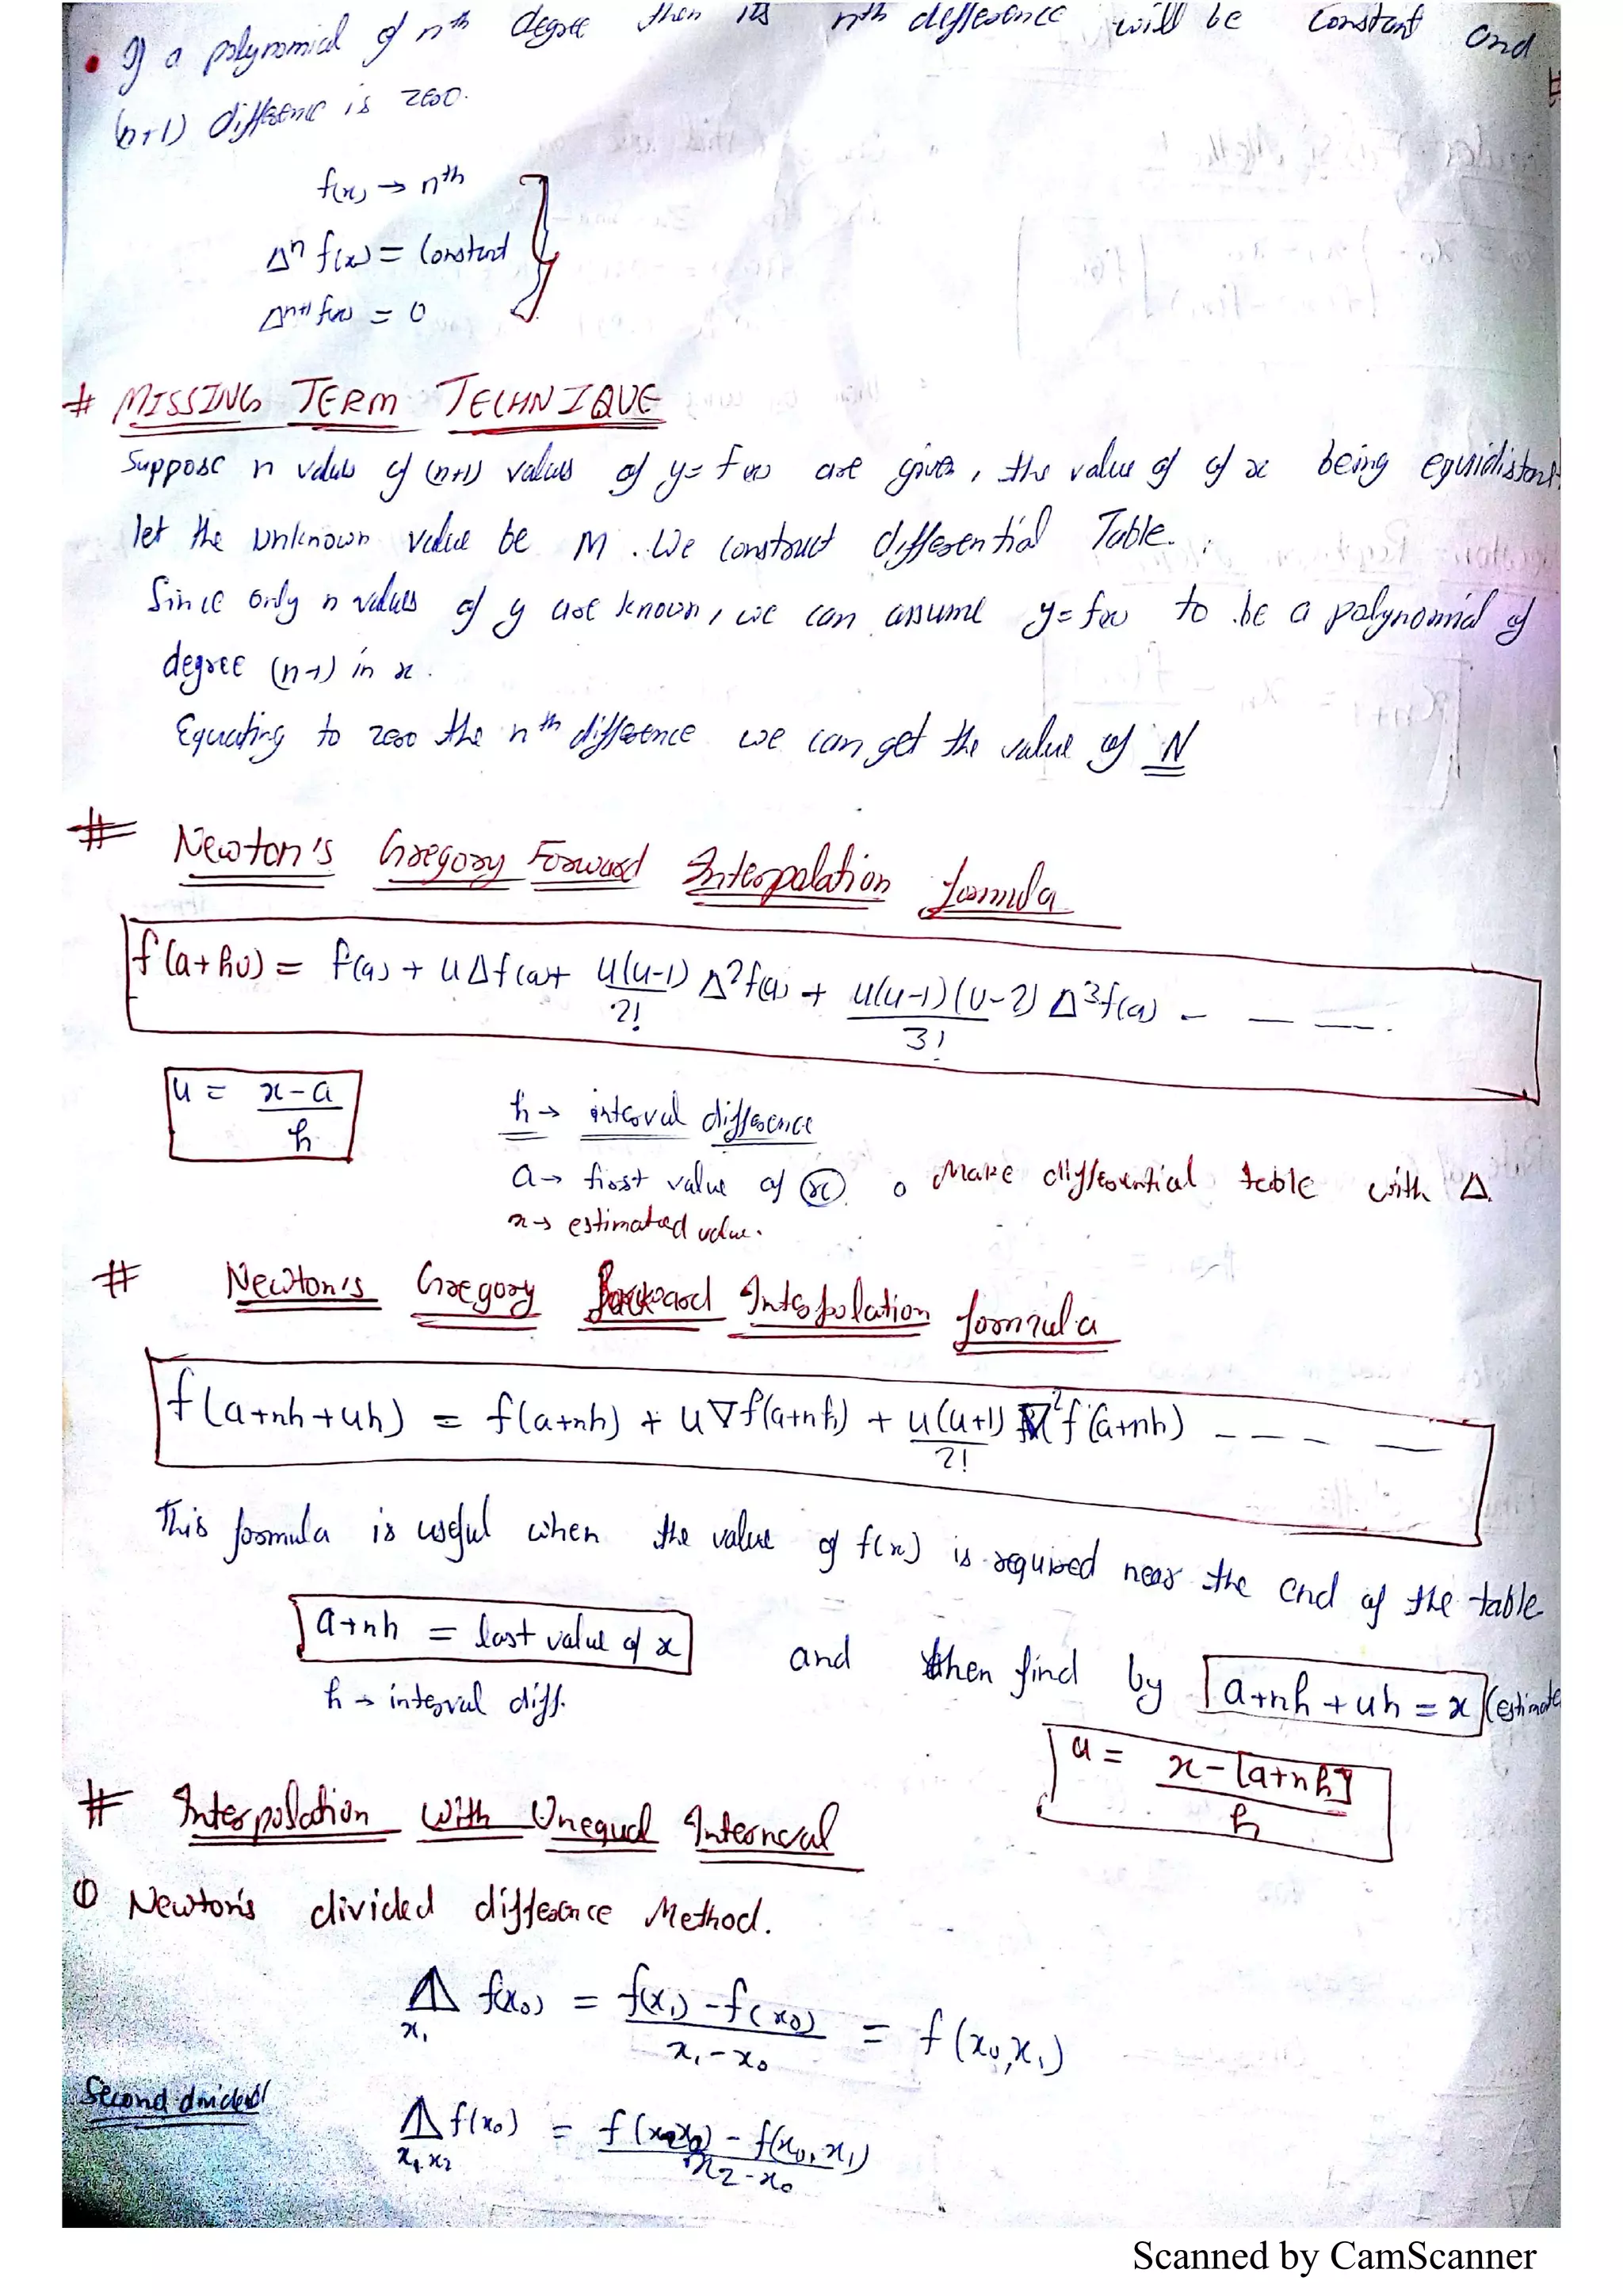 • If a polynomial of nth degree then its nth difference will be constant and
(n+1) difference is zero.
f(x) → nth
Δⁿ f(x) = constant
Δⁿ⁺¹ f(x) = 0
# MISSING TERM TECHNIQUE
Suppose n values of (n+1) values of y = f(x) are given, the value of of x being equidistant
let the unknown value be M. We construct differential Table.
Since only n values of y are known, we can assume y = f(x) to be a polynomial of
degree (n-1) in x.
Equating to zero the nth difference we can get the value of N
# Newton's Gregory Forward Interpolation formula
f(a+hu) = f(a) + uΔf(a) + u(u-1)/2! Δ²f(a) + u(u-1)(u-2)/3! Δ³f(a) - - -
u = x-a/h
h → interval difference
a → first value of x o Make differential table with Δ.
x → estimated value.
# Newton's Gregory Backward Interpolation formula
f(a+nh+uh) = f(a+nh) + u∇f(a+nh) + u(u+1)/2! ∇²f(a+nh) - - - -
This formula is useful when the value of f(x) is required near the end of the table
a+nh = last value of x and then find by a+nh+uh = x (estimate
h → interval diff.
u = x-[a+nh]/h
# Interpolation With Unequal Interneval
① Newton's divided difference Method.
⧋ f(x₀) = f(x₁)-f(x₀)/x₁-x₀ = f(x₀,x₁)
x₁
Second divided
⧋ f(x₀) = - f(x₀,x₁)/x₂-x₀
x₁,x₂
Scanned by CamScanner